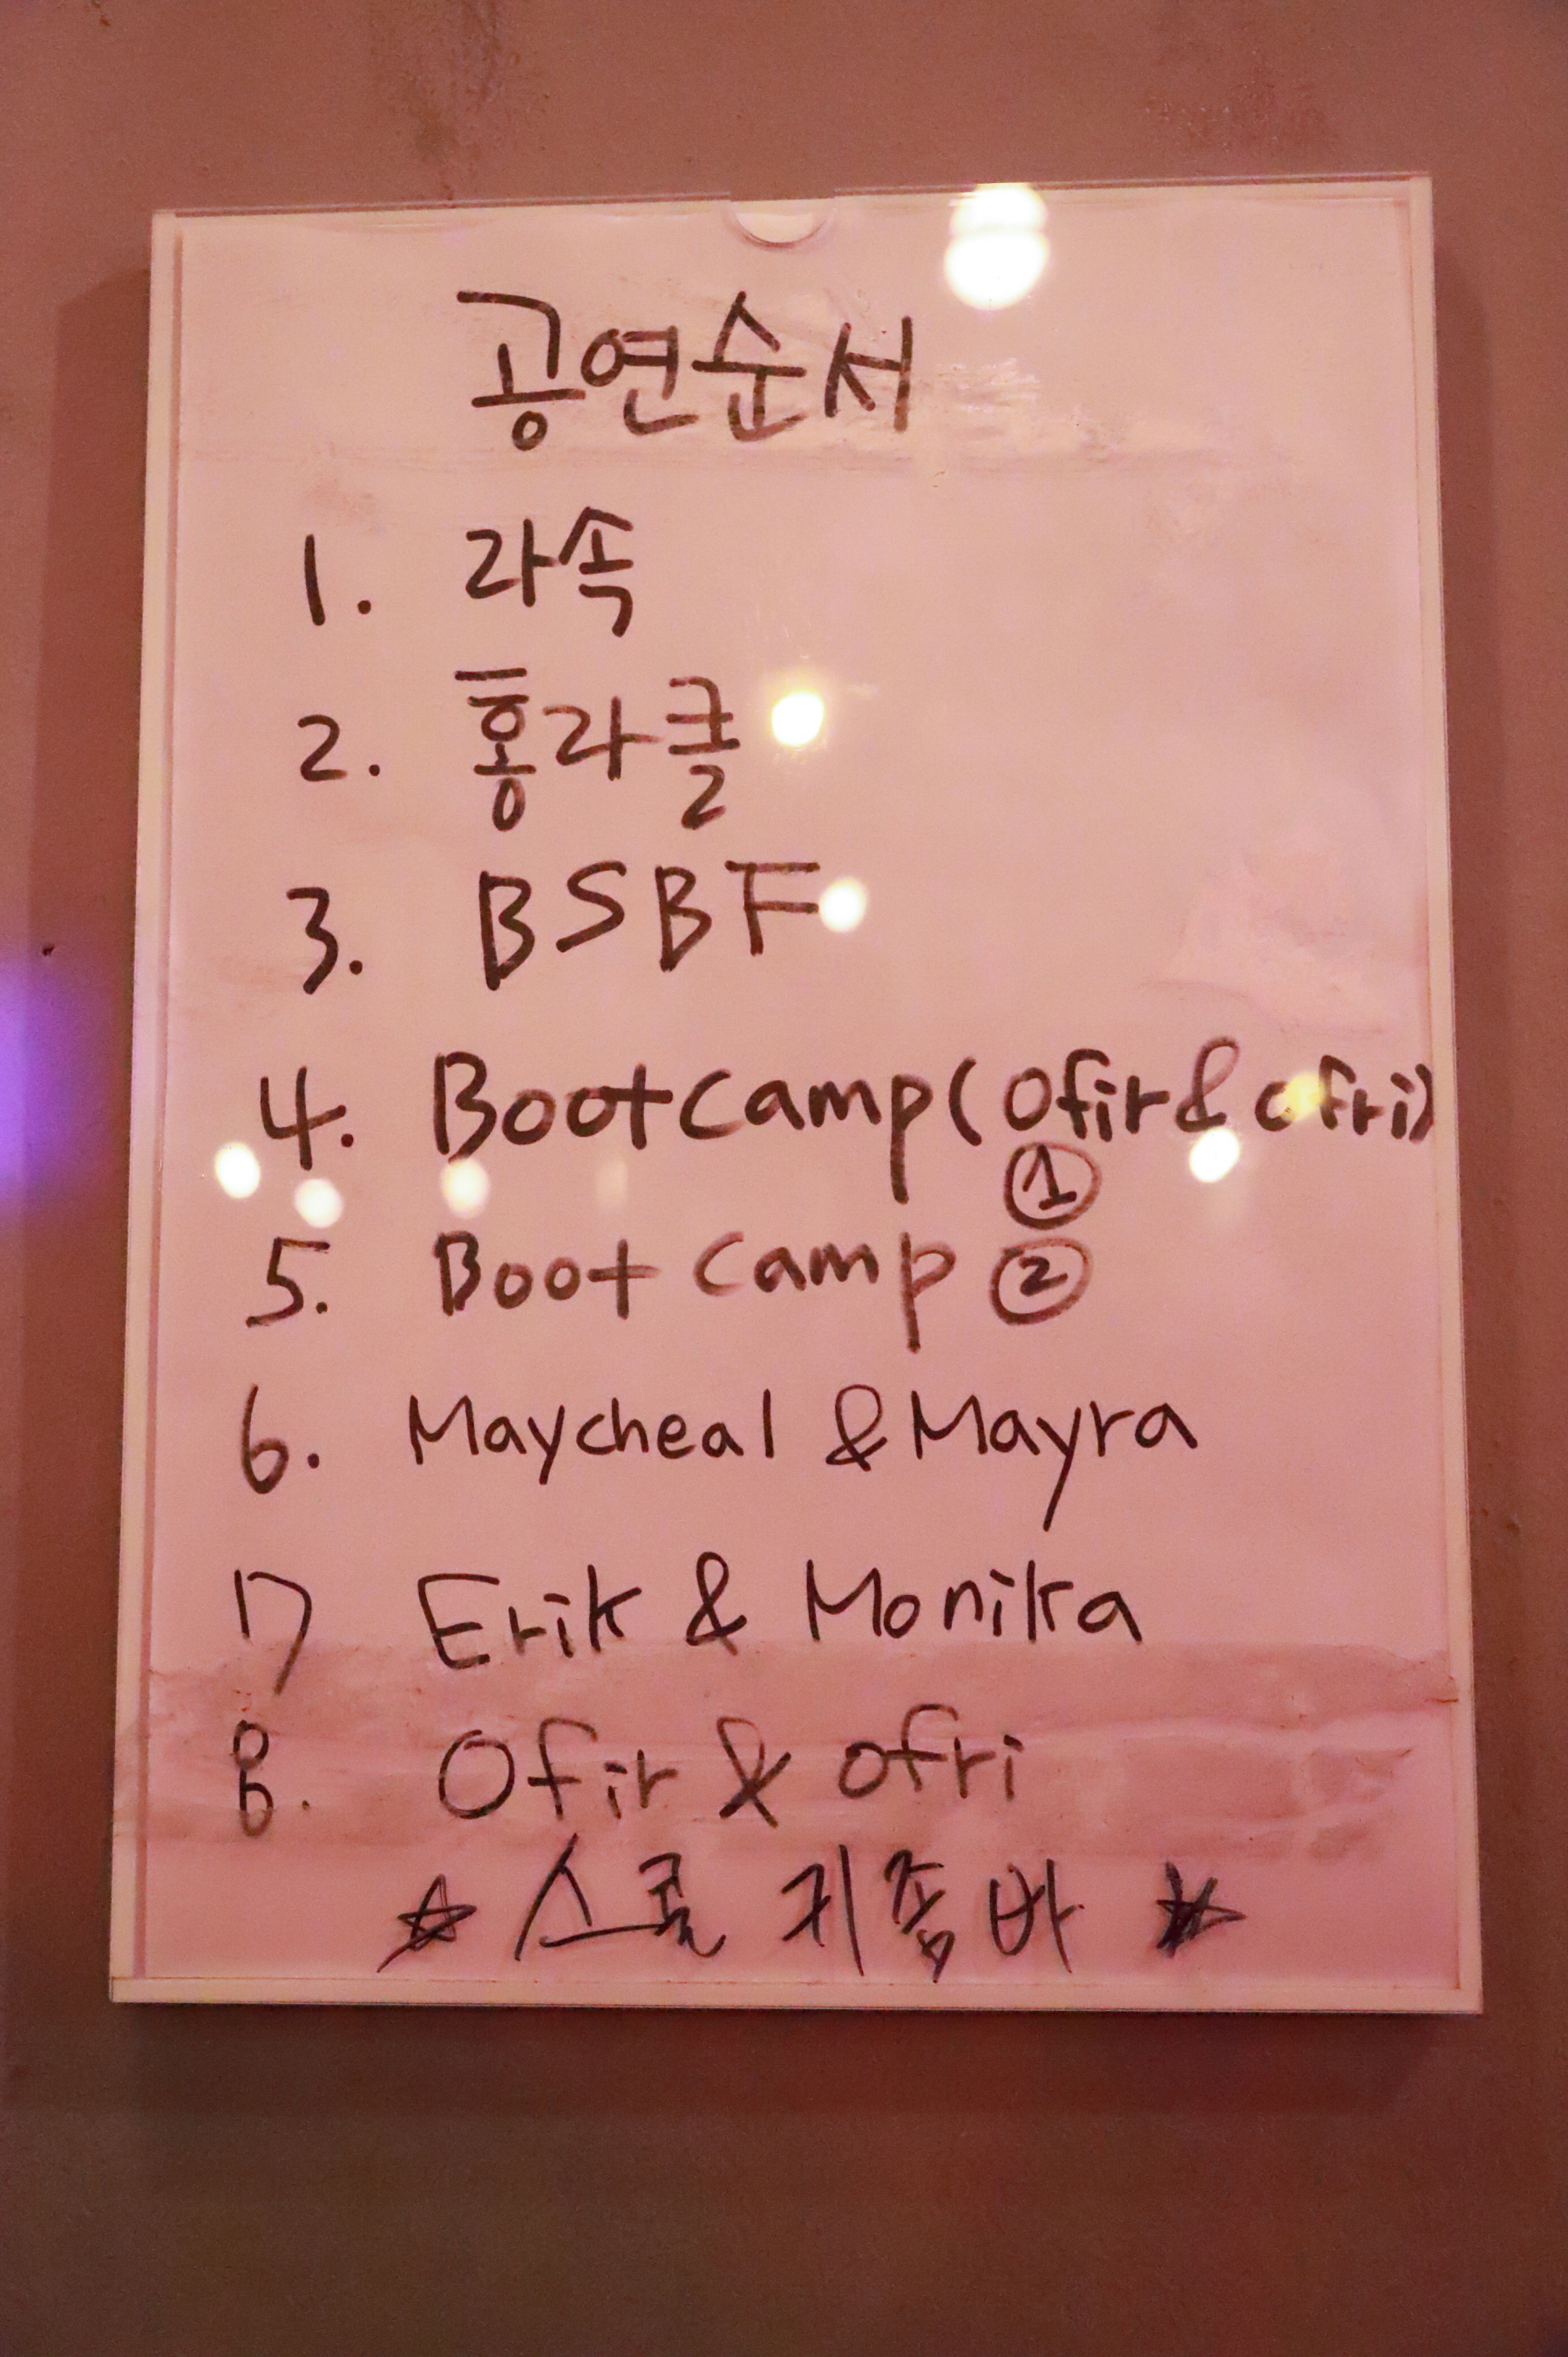 공연순서
1. 라속
2. 홍라클
3. BSBF
4. Bootcamp(Ofir & Ofri)
①
5. Boot camp ②
6. Maycheal & Mayra
7 Erik & Monika
8. Ofir & Ofri
☆ 스콜 키좀바 ☆